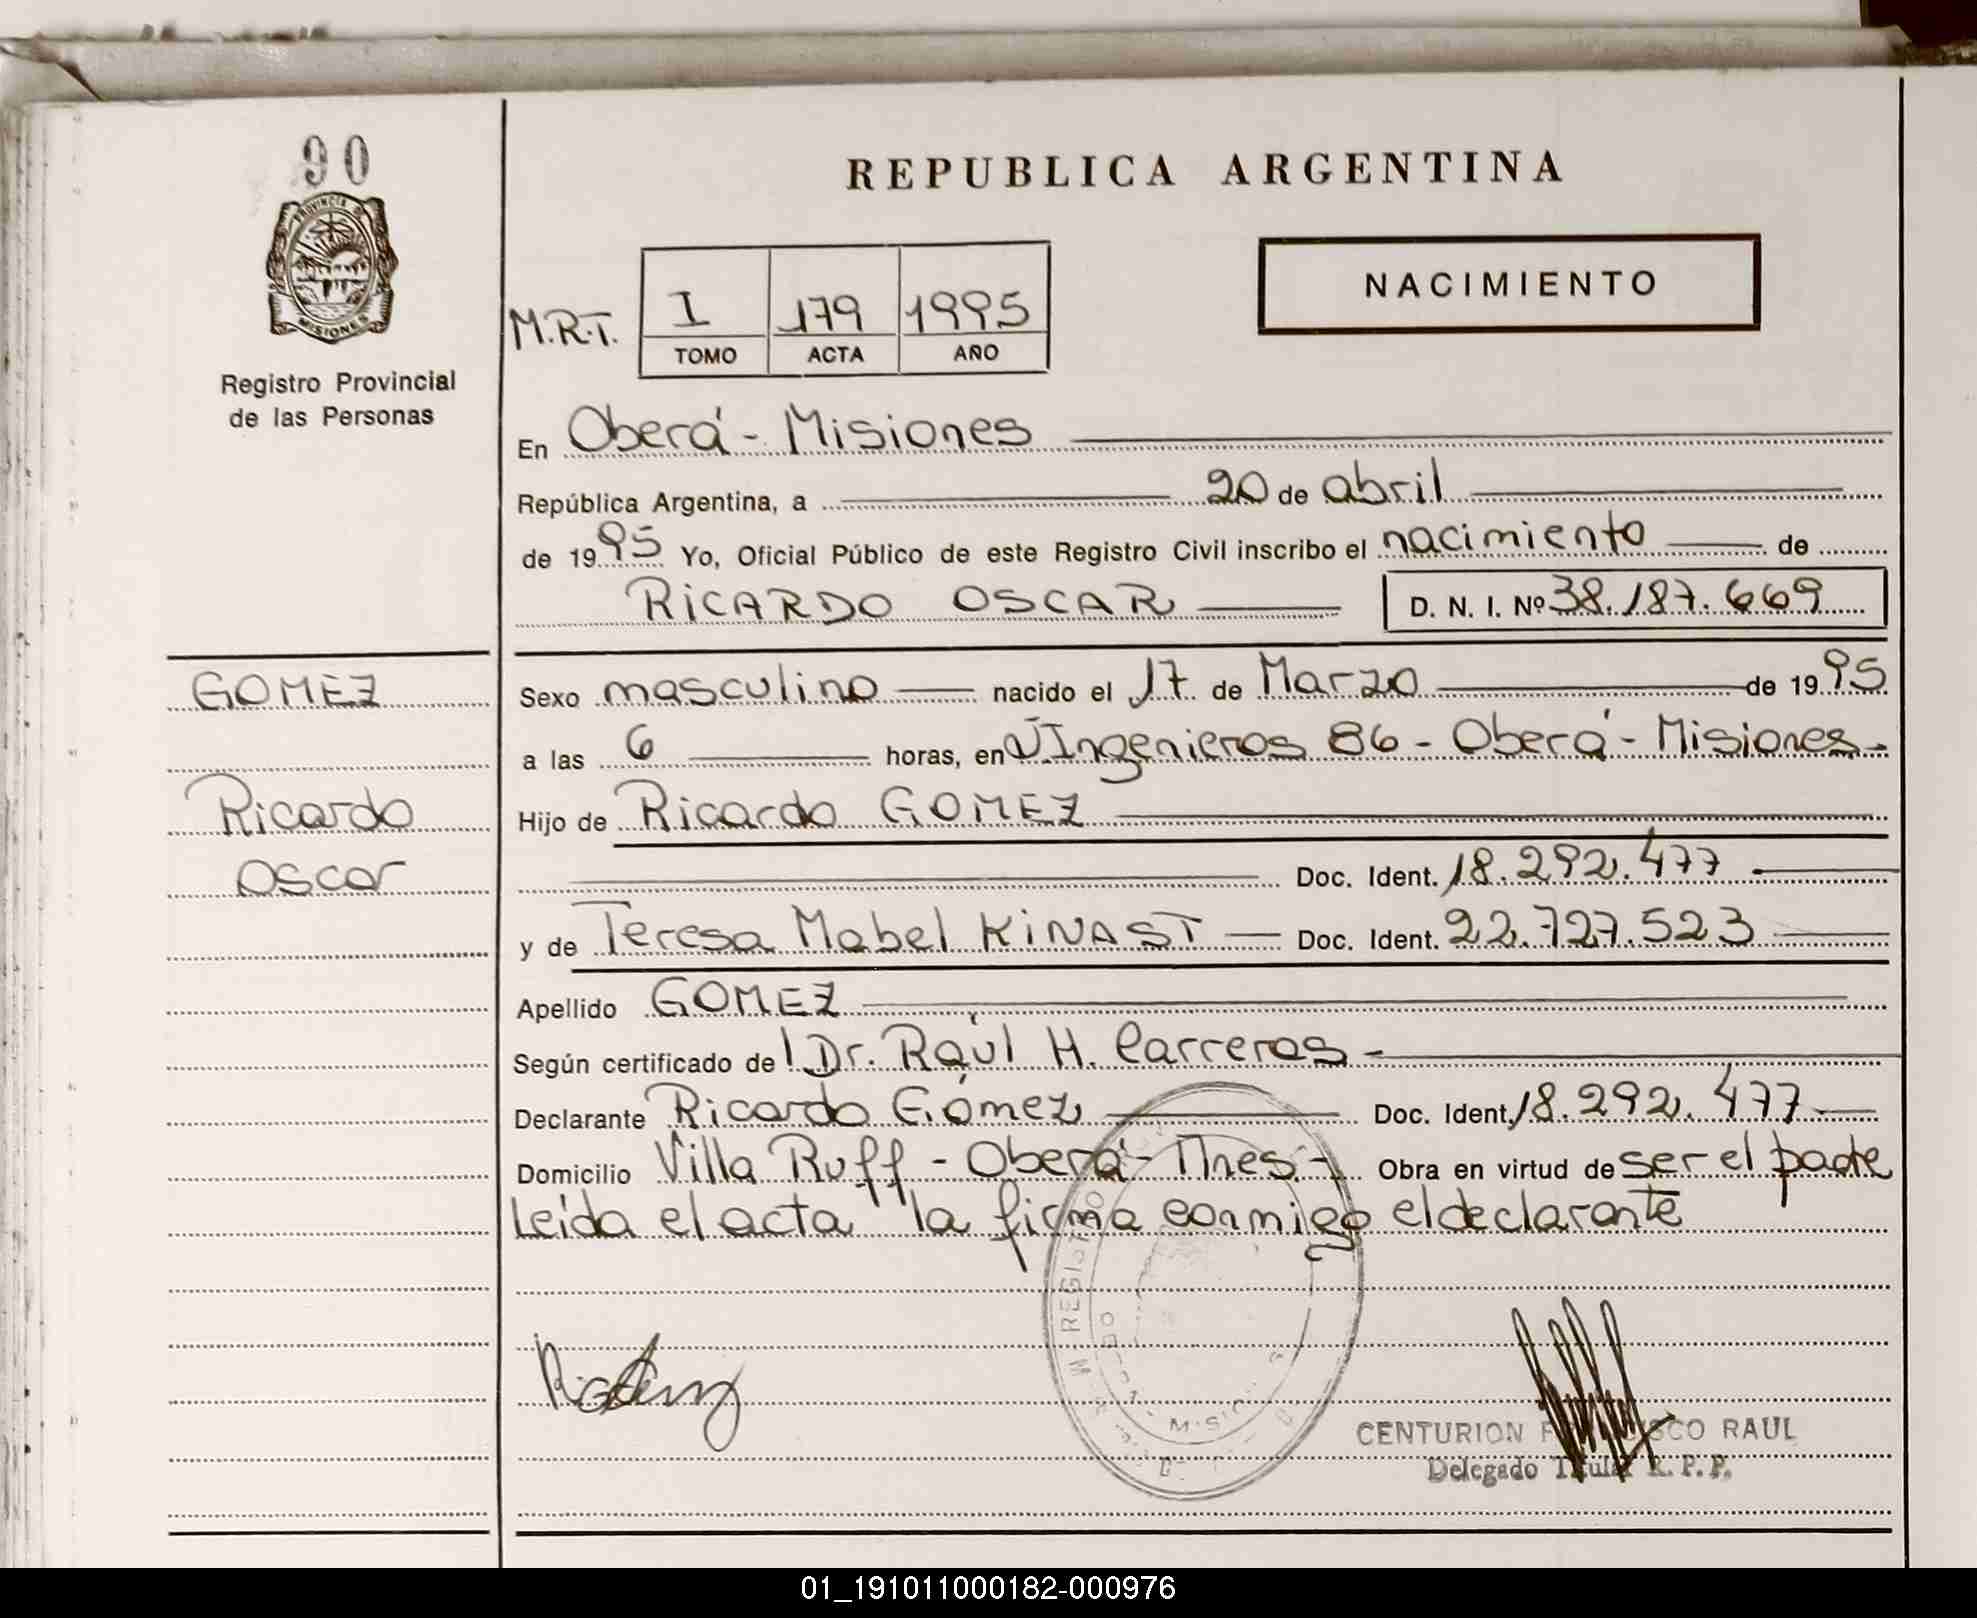 90
PROVINCIA DE
MISIONES
Registro Provincial
de las Personas
REPUBLICA ARGENTINA
NACIMIENTO
M.R.T. I 179 1995
TOMO ACTA AÑO
En Oberá - Misiones
República Argentina, a 20 de abril
de 1995 Yo, Oficial Público de este Registro Civil inscribo el nacimiento de
RICARDO OSCAR D. N. I. Nº 38.187.669
GOMEZ
Ricardo
Oscar
Sexo masculino nacido el 17 de Marzo de 1995
a las 6 horas, en Ingenieros 86 - Oberá - Misiones.
Hijo de Ricardo GOMEZ
Doc. Ident. 18.292.477
y de Teresa Mabel KINAST Doc. Ident. 22.727.523
Apellido GOMEZ
Según certificado de Dr. Raúl H. Carreras -
Declarante Ricardo Gómez Doc. Ident. 18.292.477
Domicilio Villa Ruff - Oberá - Mnes - Obra en virtud de ser el padre
Leída el acta la firma conmigo el declarante
REGISTRO
CENTURION FRANCISCO RAUL
Delegado Titular R. P. P.
01_191011000182-000976